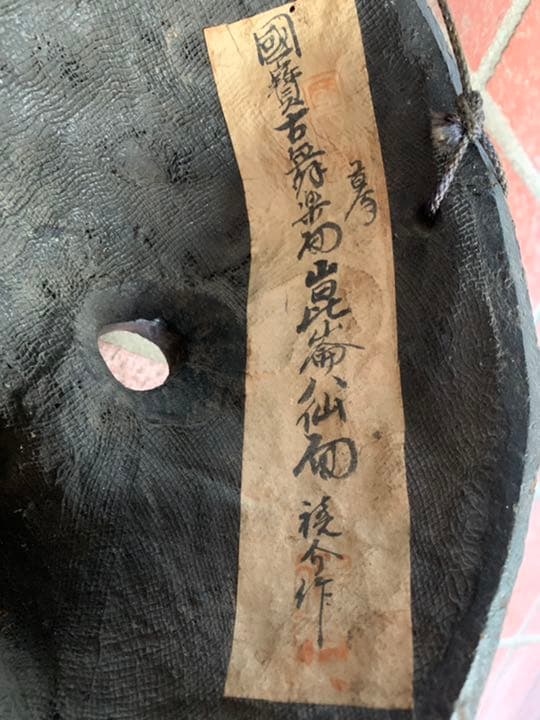 摹
國寶古舞楽面崑崙八仙面 介作